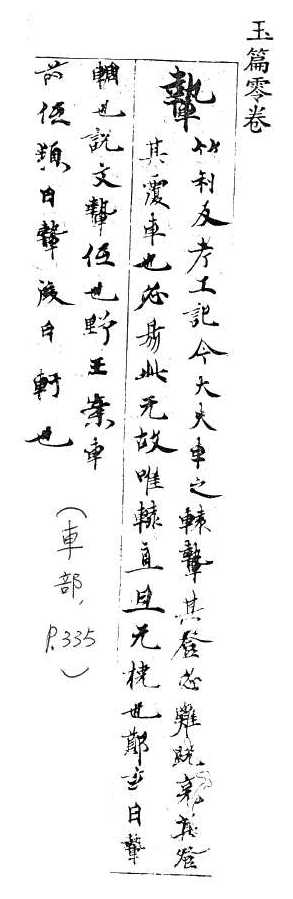 玉篇零卷
輊 竹利反考工記今大夫車之轅輊其登必難既克其登
其覆車也必易此无故唯轅直且无橈也鄭玄曰輊
輖也說文輊低也野王案車
前低頓曰輊後曰軒也
(車部,
P.335)